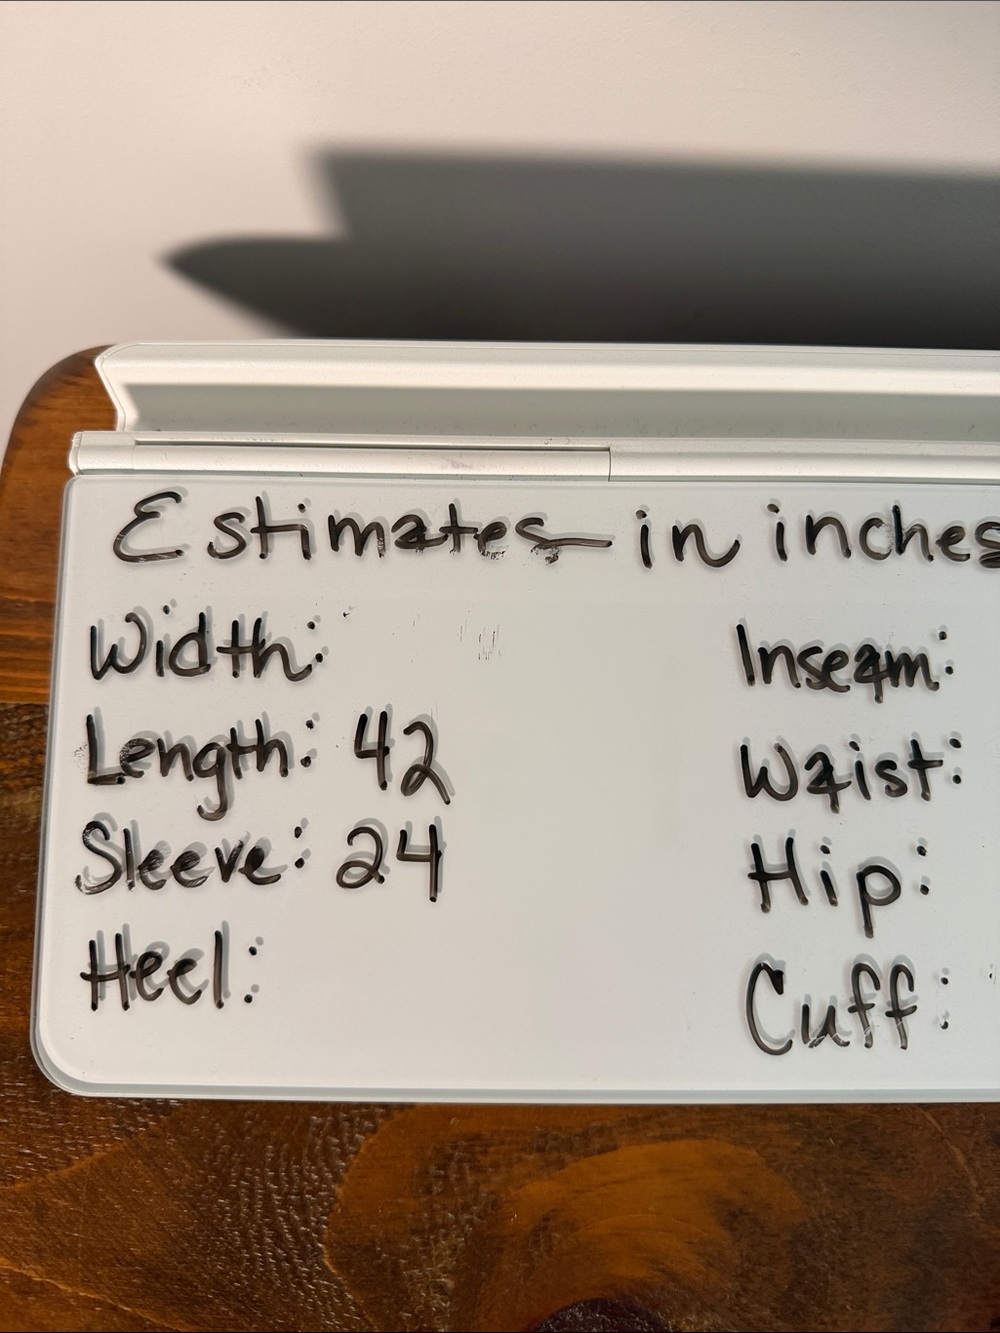 Estimates in inches
Width:
Length: 42
Sleeve: 24
Heel:
Inseam:
Waist:
Hip:
Cuff: